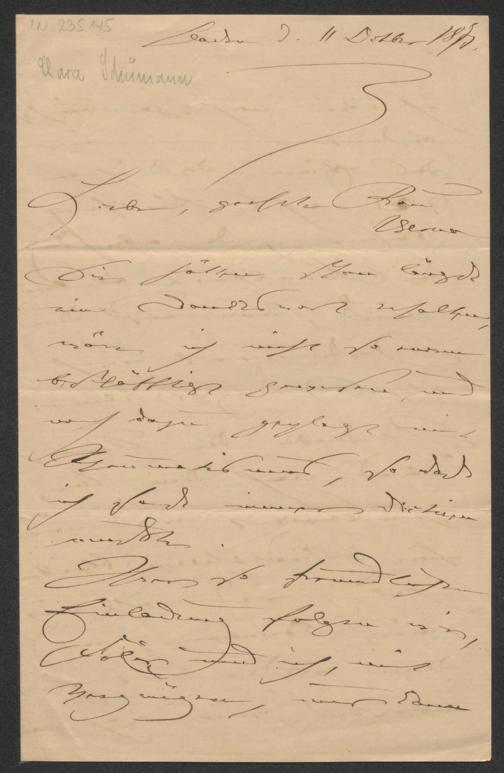 IN 235.145
Clara Schumann
d. 11 Octbr 187
Liebe, geehrte Frau
Sie hätten schon längst
ein Dankeswort erhalten,
wäre ich nicht so enorm
beschäftigt gewesen, und
noch dazu geplagt mit
Rheumatismus, so daß
ich fast immer dictiren
mußte.
Ihrer so freundlichen
Einladung folgen wir,
und ich, mit
Vergnügen, nur